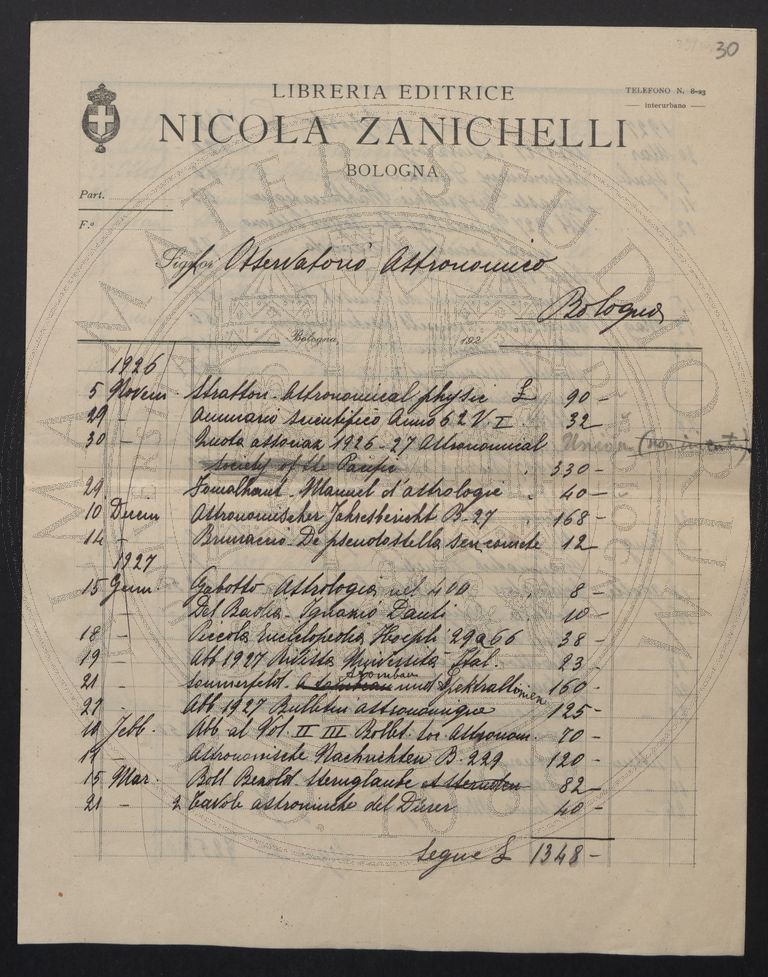 30
LIBRERIA EDITRICE
TELEFONO N. 8-23
interurbano
NICOLA ZANICHELLI
BOLOGNA
Part.
F.º
Signor Osservatorio Astronomico
Bologna
Bologna, 192
1926
5 Novem. Stratton - Astronomical physic £ 90 -
29 - Annuario scientifico Anno 62 V. I 32
30 - Quota associaz 1926-27 Astronomical Union (non inventi)
Society of the Pacific 330 -
29 Fomalhaut - Manuel d'astrologie 40 -
10 Dicem Astronomischer Jahresbericht B. 27 168 -
14 - Brunacció De pseudostella seu comete 12
1927
15 Genn. Gabotto Astrologia nel 400 8 -
Del Badia - Ignazio Danti 10 -
18 - Piccola Enciclopedia Hoepli 29a66 38 -
19 - Abb 1927 Rivista Università Ital. 23 -
21 - Sommerfeld - Atombau und Spektrallinien 160 -
27 - Abb 1927 Bulletin astronomique 125 -
10 Febb. Abb. al Vol. II III Bollet. soc Astronom. 70 -
11 - Astronomische Nachrichten B. 229 120 -
15 Mar. Boll Bezold - Sternglaube 82 -
21 - 2 Tavole astronomiche del Dürer 40 -
Segue £ 1348 -